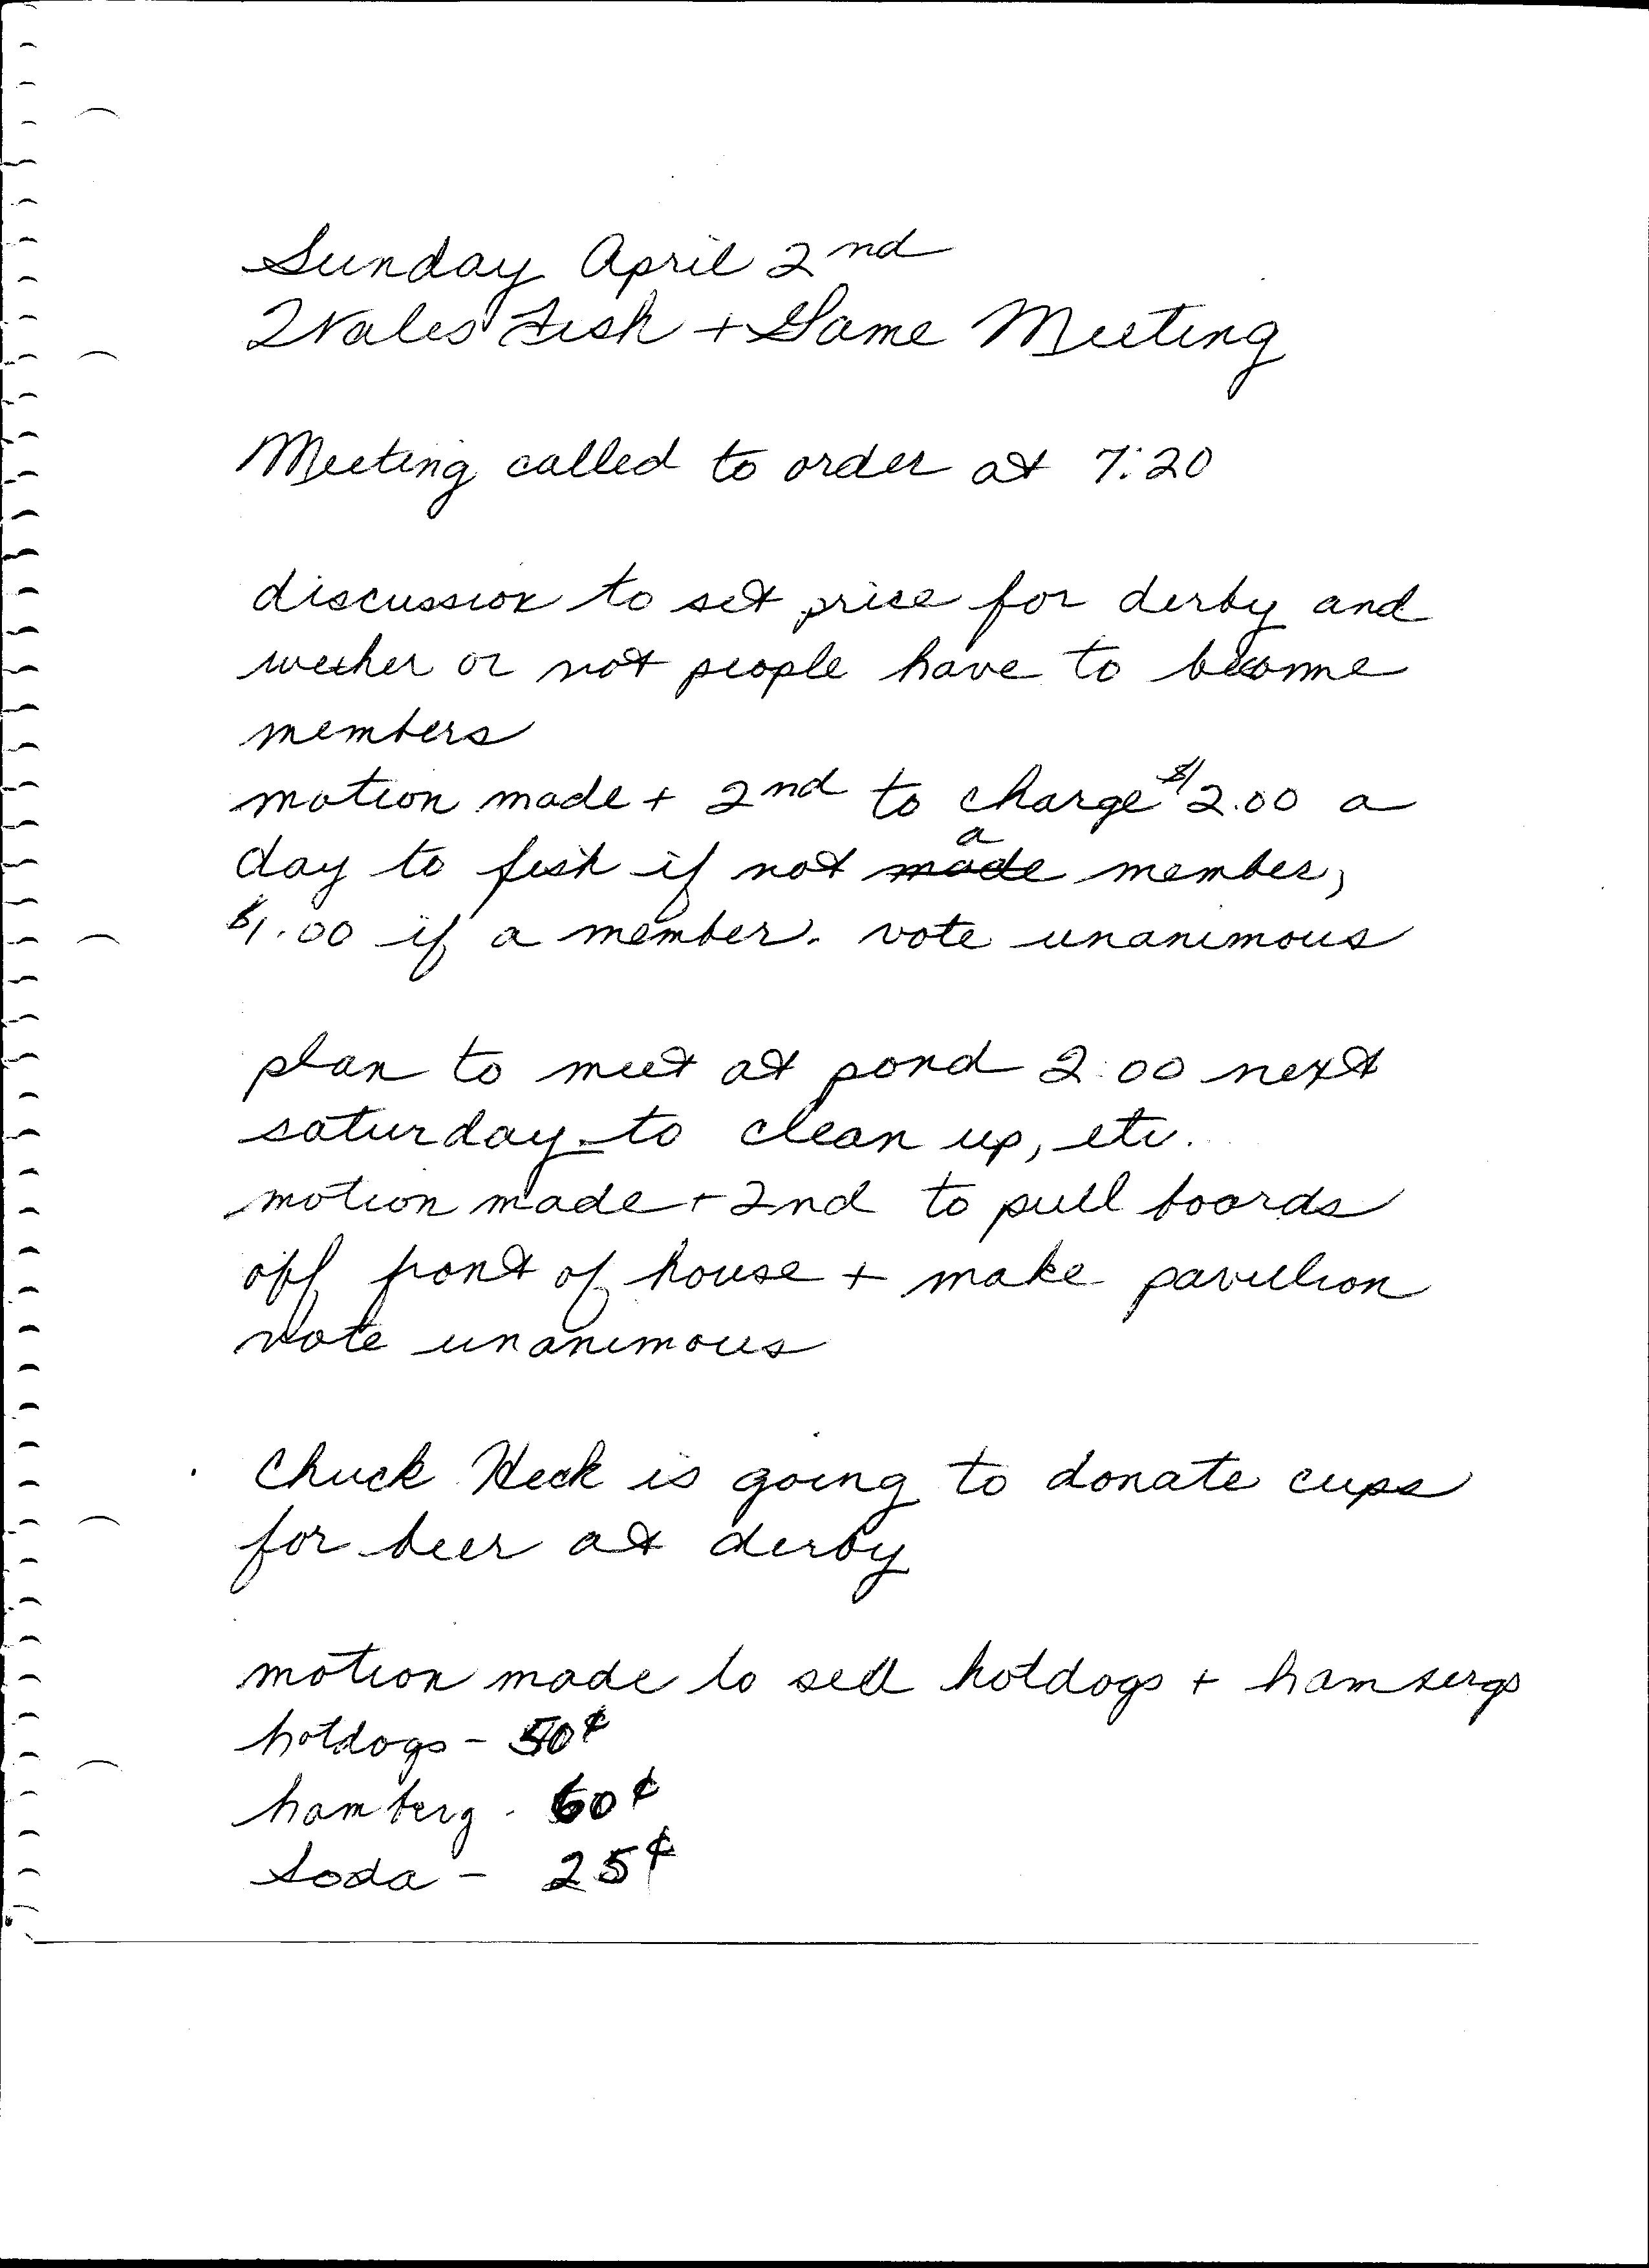 Sunday April 2nd
Wales Fish + Game Meeting
Meeting called to order at 7:20
discussion to set price for derby and
wether or not people have to become
members
motion made + 2nd to charge $2.00 a
day to fish if not made a member,
$1.00 if a member. vote unanimous
plan to meet at pond 2:00 next
saturday to clean up, etc.
motion made + 2nd to pull boards
off front of house + make pavillion
vote unanimous
Chuck Heck is going to donate cups
for beer at derby
motion made to sell hotdogs + hambergs
hotdogs - 50¢
hamberg - 60¢
Soda - 25¢